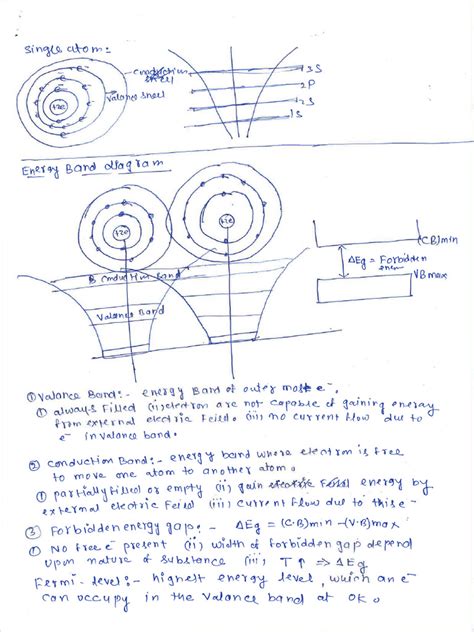 Single atom:
conduction shell
Valance shell
+ze
3S
2P
2S
1S
Energy Band diagram
+ze
+ze
B conduction Band
Valance Band
(CB)min
ΔEg = Forbidden
VB max
① Valance Band:- energy Band of outer most e⁻.
① always filled (ii) electron are not capable of gaining energy
from external electric Feild. (iii) no current flow due to
e⁻ in valance band.
② Conduction Band:- energy band where electron is free
to move one atom to another atom.
① partially filled or empty (ii) gain electric Feild energy by
external electric Feild (iii) current flow due to this e-
③ Forbidden energy gap:- ΔEg = (C·B)min -(V·B)max
① No free e⁻ present (ii) width of forbidden gap depend
upon nature of substance (iii) T↑ ⇒ ΔEg
Fermi-level:- highest energy level, which an e⁻
can occupy in the valance band at 0K.